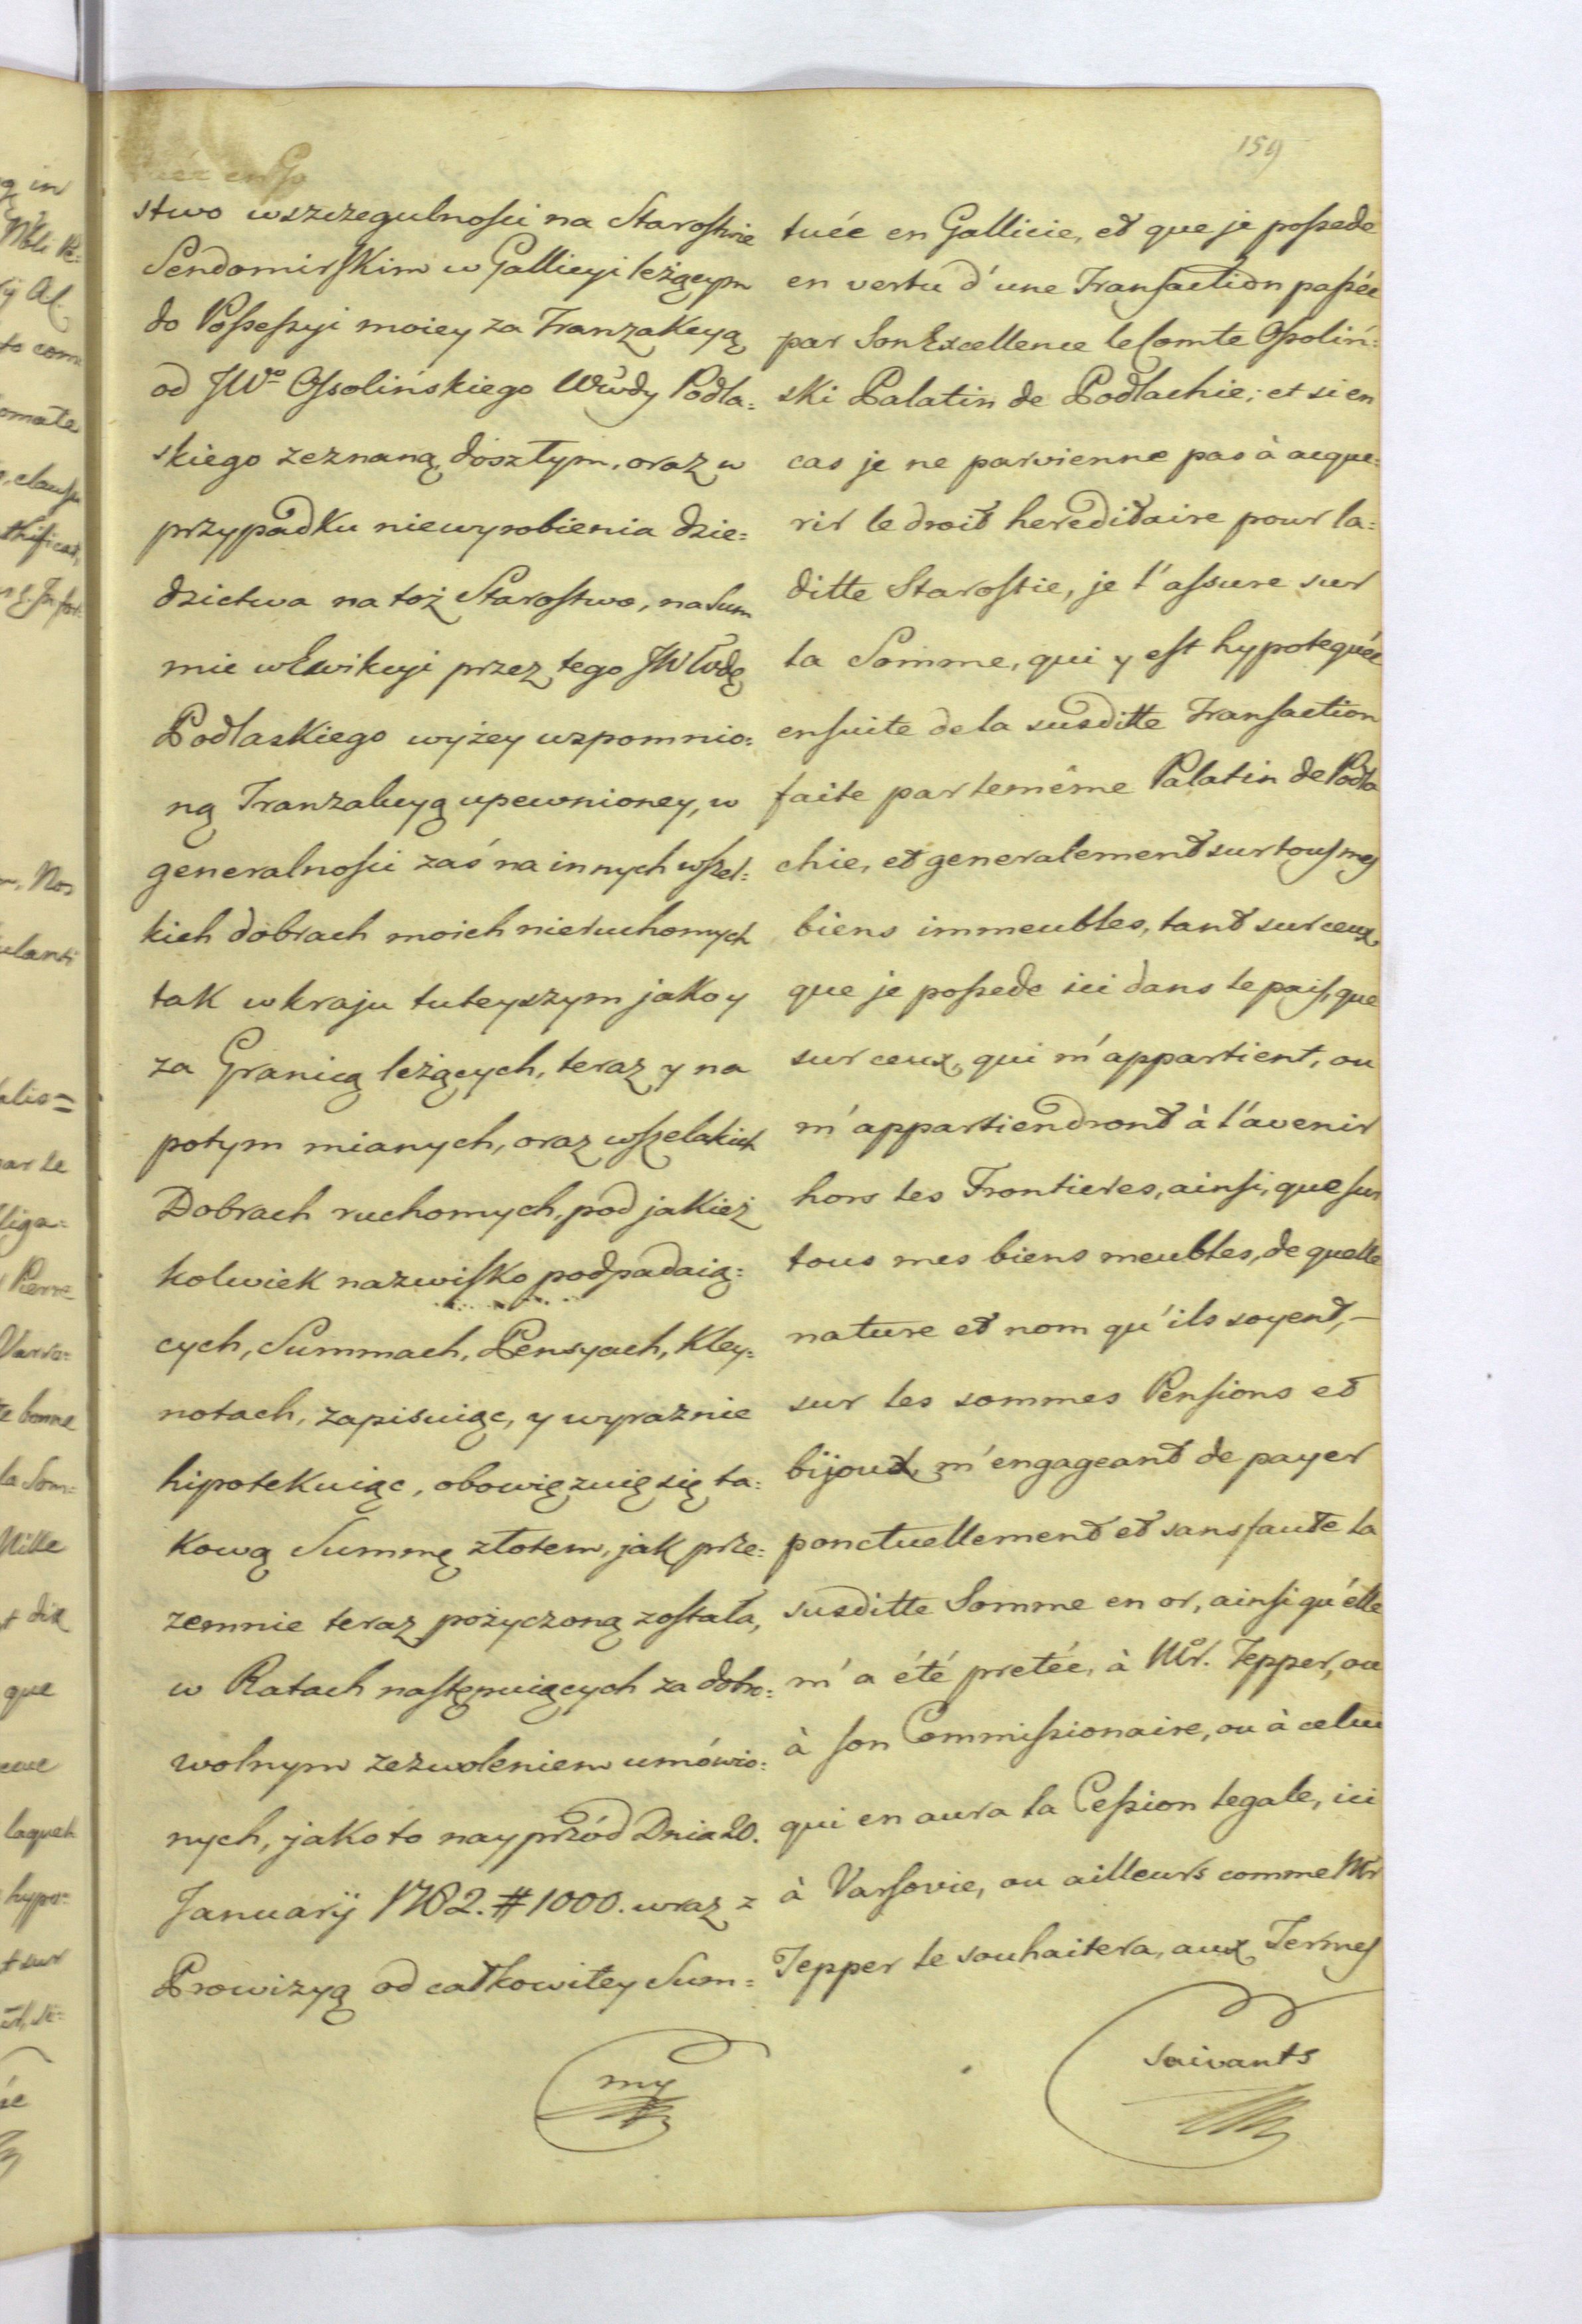 159
stwo wszczegulnosci na Starostwie
Sendomirskim w Gallicyi leżącym
do Possessyi moiey za Tranzakcyą
od JWo Ossolińskiego Wwdy Podla=
skiego zeznaną, doszłym, oraz w
przypadku niewyrobienia dzie=
dzictwa na toż Starostwo, na Sum
mie w Ewikcyi przez tego JW Wdę
Podlaskiego wyżey wspomnio=
ną Tranzakcyą upewnioney, w
generalnosci zaś na innych wszel=
kich dobrach moich nieruchomych
tak w kraju tuteyszym jako y
za Granicą leżących, teraz y na
potym mianych, oraz wszelakich
Dobrach ruchomych, pod jakież
kolwiek nazwisko podpadaią=
cych, Summach, Pensyach, Kley=
notach, zapisuiąc, y wyraznie
hipotekuiąc, obowięzuię się ta=
kową Summę złotem, jak prze=
zemnie teraz pożyczoną została,
w Ratach następuiących za dobro=
wolnym zezwoleniem umówio=
nych, jako to nayprzód Dnia 20.
Januarÿ 1782. # 1000. wraz z
Prowizyą od całkowitey Sum=
my
tuée en Gallicie, et que je possede
en vertu d'une Transaction passée
par Son Excellence le Comte Ossoliń=
ski Palatin de Podlachie; et si en
cas je ne parvienne pas à acque=
rir le droit hereditaire pour la=
ditte Starostie, je l'assure sur
la Somme, qui y est hypotequée
ensuite de la susditte Transaction
faite par le même Palatin de Podla
chie, et generalement sur tous mes
biens immeubles, tant sur ceux,
que je possede ici dans le pais, que
sur ceux, qui m'appartient, ou
m'appartiendront à l'avenir
hors les Frontieres, ainsi, que sur
tous mes biens meubles, de quelle
nature et nom qu'ils soyent, –
sur les sommes Pensions et
bijoux, m'engageant de payer
ponctuellement et sans faute la
susditte Somme en or, ainsi qu'elle
m'a été pretée, à Mr. Tepper, ou
à son Commissionaire, ou à celui
qui en aura la Cession legale, ici
à Varsovie, ou ailleurs comme Mr
Tepper le souhaitera, aux Termes
suivants